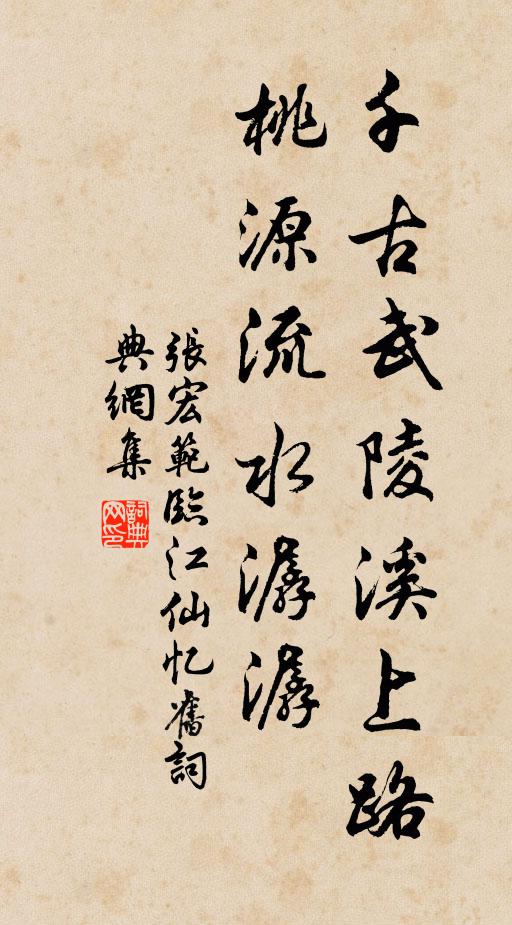 千古武陵溪上路
桃源流水潺潺
張宏範臨江仙忆舊詞
典網集
詞典
网印